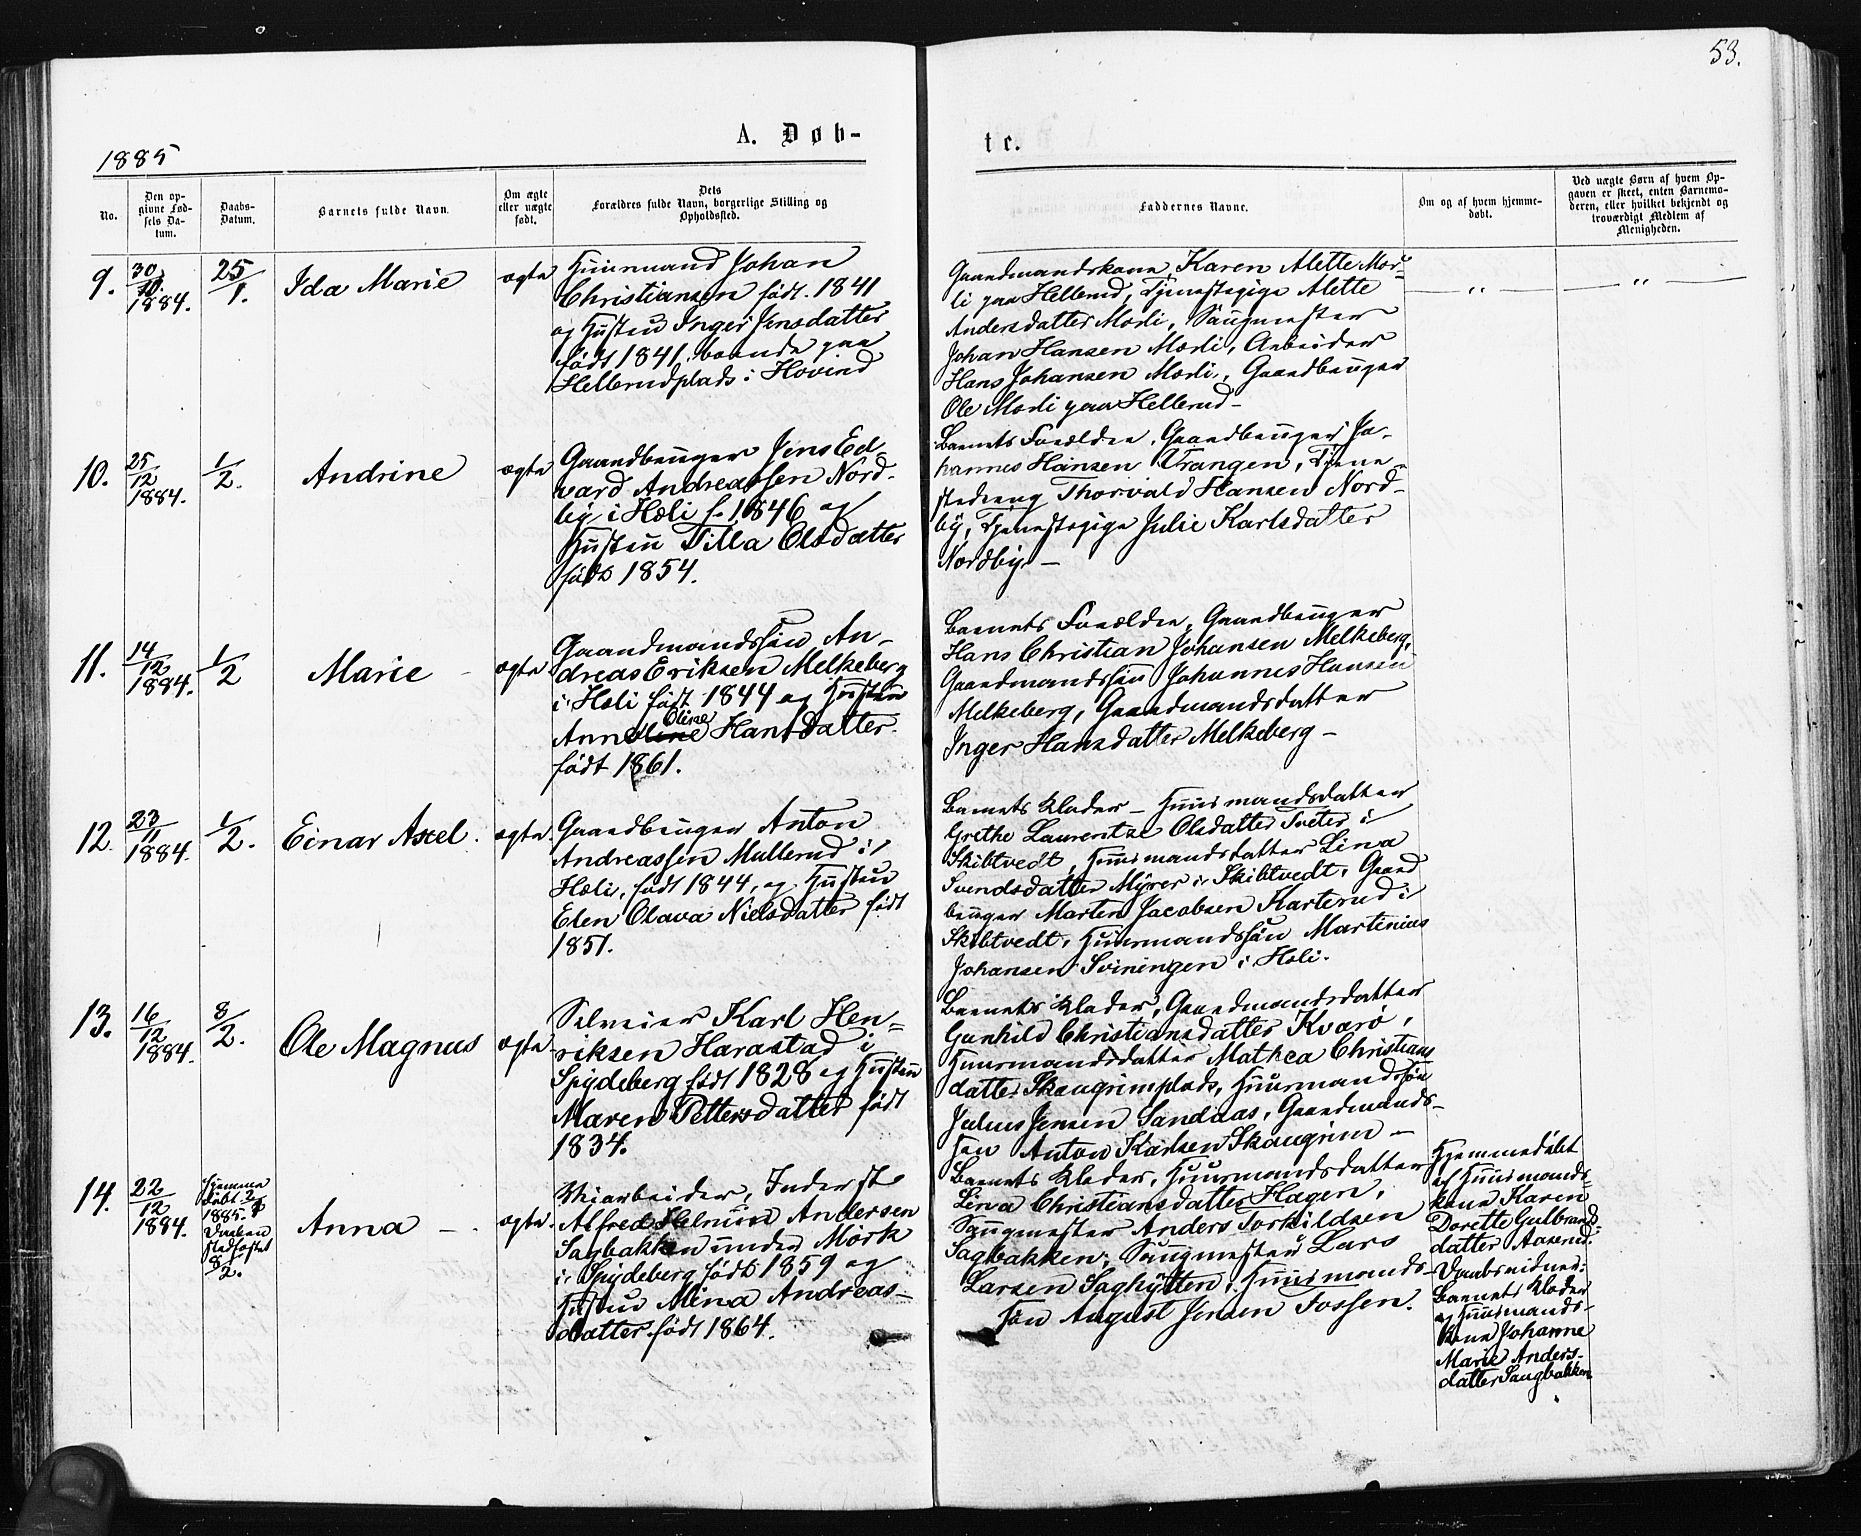 53.
1885
A. Døb-
te.
No.
Den op-
givne Fød-
sels Da-
tum.
Daabs-
Datum.
Barnets fulde Navn.
Om ægte
eller uægte
født.
Dets
Forældres fulde Navn, borgerlige Stilling og
Opholdssted.
Faddernes Navne.
Om og af hvem hjemme-
døbt.
Ved uægte Børn af hvem Op-
gaven er skeet, enten Barnemo-
deren, eller hvilket bekjendt og
troværdigt Medlem af
Menigheden.
9.
30/10
1884.
25/1.
Ida Marie
ægte
Huusmand Johan
Christiansen født. 1841
og Hustru Inger Jensdatter
født 1841, boende paa
Hellerudplads i Hovind
Gaardmandskone Karen Alette Mør-
li paa Hellerud, Tjenestepige Alette
Andersdatter Mørli, Saugmester
Johan Hansen Mørli, Arbeider
Hans Johansen Mørli, Gaardbruger
Ole Mørli paa Hellerud –
" "
10.
25/12
1884.
1/2.
Andrine
ægte
Gaardbruger Jens Ed-
vard Andreassen Nord-
by i Høli f. 1846 og
Hustru Tilla Olsdatter
født 1854.
Barnets Forældre, Gaardbruger Jo-
hannes Hansen Vrangen, Tjene-
stedreng Thorvald Hansen Nord-
by, Tjenestepige Julie Karlsdatter
Nordby –
11.
14/12
1884.
1/2
Marie
ægte
Gaardmandssøn An-
dreas Eriksen Melkeberg
i Høli født 1844 og Hustru
Anne Oline Hansdatter
født 1861.
Barnets Forældre, Gaardbruger
Hans Christian Johansen Melkeberg,
Gaardmandssøn Johannes Hansen
Melkeberg, Gaardmandsdatter
Inger Hansdatter Melkeberg –
12.
23/11
1884.
1/2.
Einar Axel.
ægte
Gaardbruger Anton
Andreassen Mullerud i
Høli, født 1844, og Hustru
Elen Olava Nielsdatter født
1851.
Barnets Fader – Huusmandsdatter
Grethe Lauentze Olsdatter Tveter i
Skibtvedt, Huusmandsdatter Lina
Svendsdatter Myrer i Skibtvedt, Gaard
bruger Marten Jacobsen Karterud i
Skibtvedt, Huusmandssøn Martinius
Johansen Sviningen i Høli.
13.
16/12
1884.
8/2.
Ole Magnus
ægte
Selveier Karl Hen-
riksen Harastad i
Spydeberg født 1828 og Hustru
Maren Pettersdatter født
1834.
Barnets Fader, Gaardmandsdatter
Gunhild Christiansdatter Kvarø,
Huusmandsdatter Mathea Christians
datter Skaugrimplads, Huusmandssøn
Julius Jensen Sandaas, Gaardmands-
søn Anton Karlsen Skaugrim –
14.
22/12
1884.
Hjemme
døbt
1885.
Daaben
stadfæstet
8/2.
Anna –
ægte.
Alfred Andersen
Sagbakken under Mörk
i Spydeberg født 1859 og
Hustru Mina Andreas-
datter født 1864.
Barnets Fader, Huusmandsdatter
Lina Christiansdatter Hagen,
Saugmester Anders Torkildsen
Sagbakken, Saugmester Lars
Larsen Saghytten, Huusmands-
søn August Jensen Fossen.
Hjemmedøbt
af Huusmands-
kone Karen
Dorette Gulbrands-
datter Aaserud.
Daabsvidner:
Barnets Fader
og Huusmands-
kone Johanne
Marie Anders-
datter Saugbakken